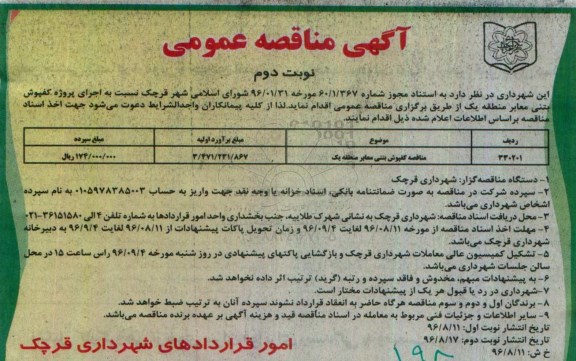 آگهی مناقصه عمومی
نوبت دوم
این شهرداری در نظر دارد به استناد مجوز شماره ۶۰/۱/۳۶۷ مورخه ۹۶/۰۱/۳۱ شورای اسلامی شهر قرچک نسبت به اجرای پروژه کفپوش
بتنی معابر منطقه یک از طریق برگزاری مناقصه عمومی اقدام نماید.لذا از کلیه پیمانکاران واجدالشرایط دعوت می‌شود جهت اخذ اسناد
مناقصه براساس اطلاعات اعلام شده ذیل اقدام نمایند.
ردیف موضوع مبلغ برآورد اولیه مبلغ سپرده
۳۳۰۲۰۱ مناقصه کفپوش بتنی معابر منطقه یک ۳/۴۷۱/۲۳۱/۸۶۷ ۱۷۴/۰۰۰/۰۰۰ ریال
۱- دستگاه مناقصه‌گزار: شهرداری قرچک
۲- سپرده شرکت در مناقصه به صورت ضمانتنامه بانکی، اسناد خزانه یا وجه نقد جهت واریز به حساب ۰۱۰۵۹۷۸۳۸۵۰۰۳ به نام سپرده
اشخاص شهرداری می‌باشد.
۳- محل دریافت اسناد مناقصه: شهرداری قرچک به نشانی شهرک طلاییه، جنب بخشداری واحد امور قراردادها به شماره تلفن ۴ الی ۳۶۱۵۱۵۸۰-۰۲۱
۴- مهلت اخذ اسناد مناقصه از مورخ ۹۶/۰۸/۱۱ لغایت ۹۶/۰۹/۴ و زمان تحویل پاکات پیشنهادات از ۹۶/۰۸/۱۱ لغایت ۹۶/۰۹/۴ به دبیرخانه
شهرداری قرچک می‌باشد.
۵- تشکیل کمیسیون عالی معاملات شهرداری قرچک و بازگشایی پاکتهای پیشنهادی در روز شنبه مورخه ۹۶/۰۹/۴ راس ساعت ۱۵ در محل
سالن جلسات شهرداری می‌باشد.
۶- به پیشنهادات مبهم، مخدوش و فاقد سپرده و رتبه (گرید) ترتیب اثر داده نخواهد شد.
۷-شهرداری در رد یا قبول هر یک از پیشنهادات مختار است.
۸- برندگان اول و دوم و سوم مناقصه هرگاه حاضر به انعقاد قرارداد نشوند سپرده آنان به ترتیب ضبط خواهد شد.
۹- سایر اطلاعات و جزئیات فنی مربوط به معامله در اسناد مناقصه قید و هزینه آگهی بر عهده برنده مناقصه می‌باشد.
تاریخ انتشار نوبت اول: ۹۶/۸/۱۱
تاریخ انتشار نوبت دوم: ۹۶/۸/۱۷
خ ش: ۹۶/۸/۱۱
امور قراردادهای شهرداری قرچک